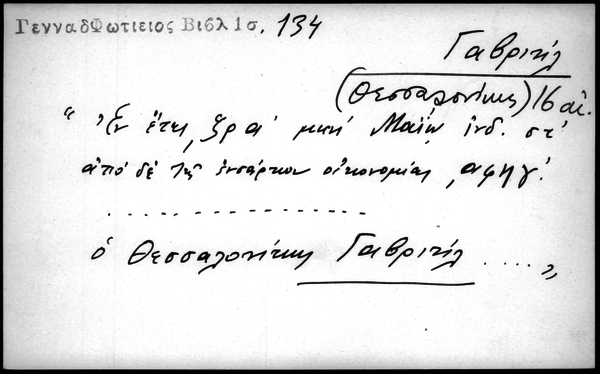 ΓενναδΦωτιειος Βιβλ 1σ. 134
Γαβριήλ
(Θεσσαλονίκης) 16 αἰ.
“ Ἐν ἔτει ͵ζρα΄ μηνί Μαίῳ ἰνδ. στ΄
ἀπό δέ τῆς ἐνσάρκου οἰκονομίας ͵αφηγ΄.
. . . . . . . . . . . . . . . .
ὁ Θεσσαλονίκης Γαβριήλ ..... „